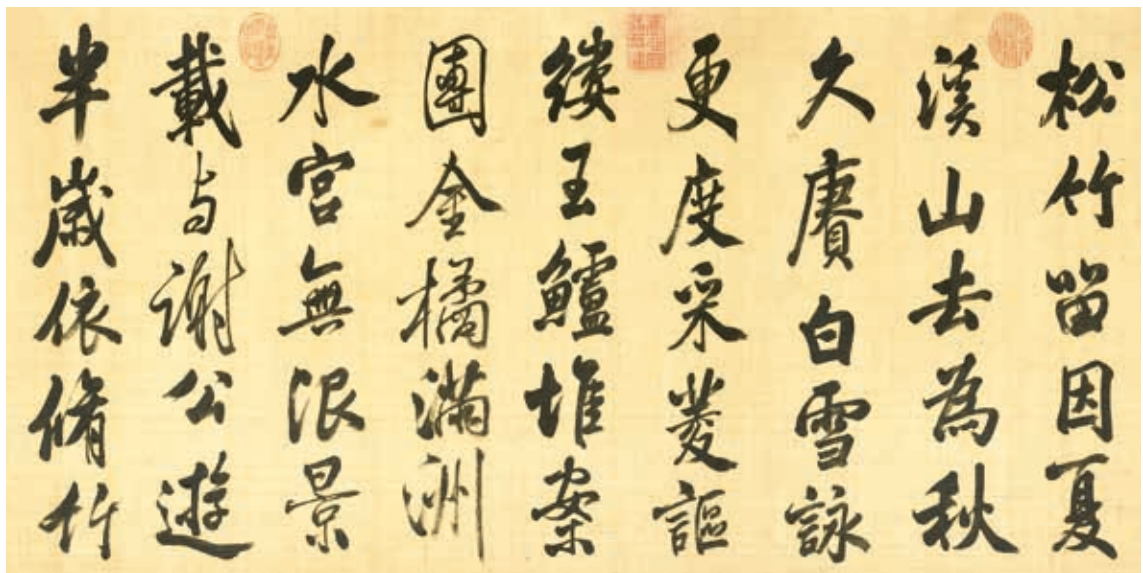 松竹留因夏
溪山去為秋
久賡白雪詠
更度采菱謳
縷玉鱸堆案
團金橘滿洲
水宮無限景
載与謝公遊
半歲依脩竹